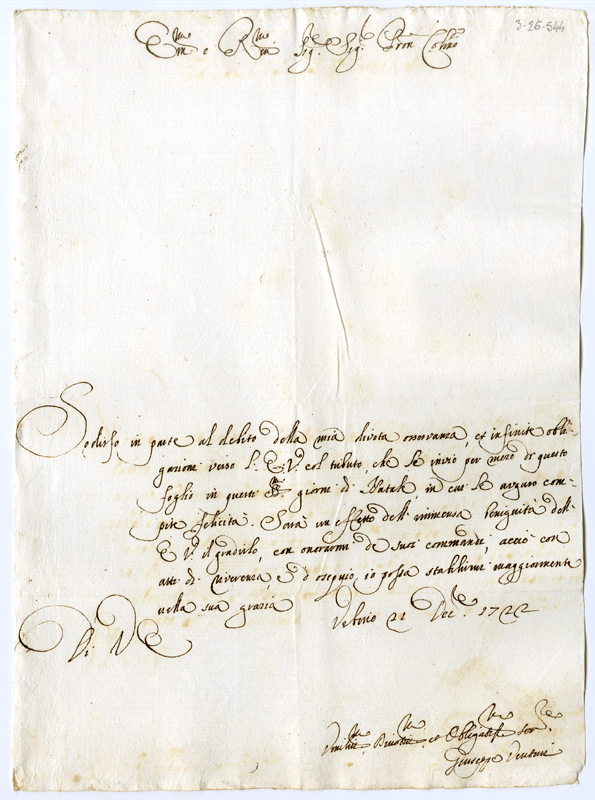 3-26-544
Em.mo e R.mo Sig.re Sig.re Pron Col.mo
Sodisfo in parte al debito della mia divota osservanza, et infinite obli-
gazioni verso l'E. V. col tributo, che le invio per mezo di questo
foglio in questi S. giorni di Natale, in cui le auguro com-
pite felicità. Sarà un effetto dell'immensa benignità dell'
E. V. il gradirlo, con onorarmi de suoi commandi, acciò con
atti di riverenza, e d'osequio, io possa stabilirmi maggiormente
nella sua grazia
Di V. E.
Urbino 21 Dec.re 1722
Umilis.mo, Devotis.mo, et Obligatis.mo Ser.re
Giuseppe Venturi